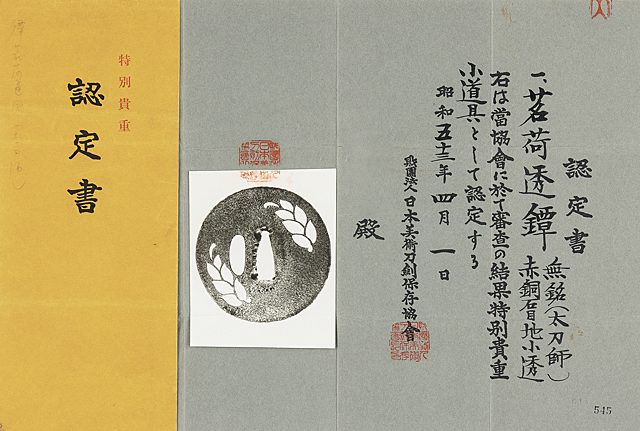 認定書
一、茗荷透鐔
無銘(太刀師)
赤銅石目地小透
右は當協會に於て審査の結果特別貴重
小道具として認定する
昭和五十三年四月一日
財團法人日本美術刀劍保存協會
殿
545
特別貴重
認定書